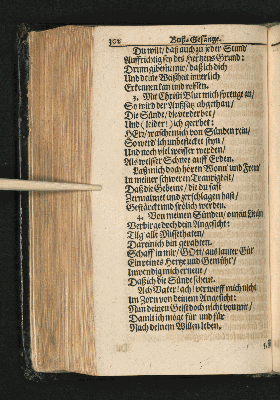 302 Buß-Gesänge.
Du wilt/ daß auch zu jeder Stund/
Auffrichtig sey des Hertzens Grund:
Drum gib
Und deine Weißheit innerlich
Erkennen kan und wissen.
3. Mit Christi Blut mich sprenge an/
So wird der Aussatz abgethan/
Die Sünde/ die
Und (leider!) ich geerbet:
HErr/ wasche mich von Sünden rein/
So werd' ich unbefleckt seyn/
Und noch viel weisser werden/
Als weisser Schnee auff Erden.
Laß mich doch hören Wonn' und Freud'
In meiner schweren Traurigkeit/
Daß die Gebeine/ die du fast
Zermalmet und zerschlagen hast/
Gestärckt und frölich werden.
4. Von meinen Sünden/
Verbirge doch dein Angesicht:
Tilg' alle Missethaten/
Darein ich bin gerahten.
Schaff' in mir/ GOtt/ aus lauter Güt'
Ein reines Hertze und Gemüht/
Inwendig mich erneue/
Daß ich die Sünde scheue.
Ach Vater/ ach! verwirff mich nicht
Im Zorn von deinem Angesicht:
Nim deinen Geist doch nicht von mir/
Damit ich möge für und für
Nach deinem Willen leben.